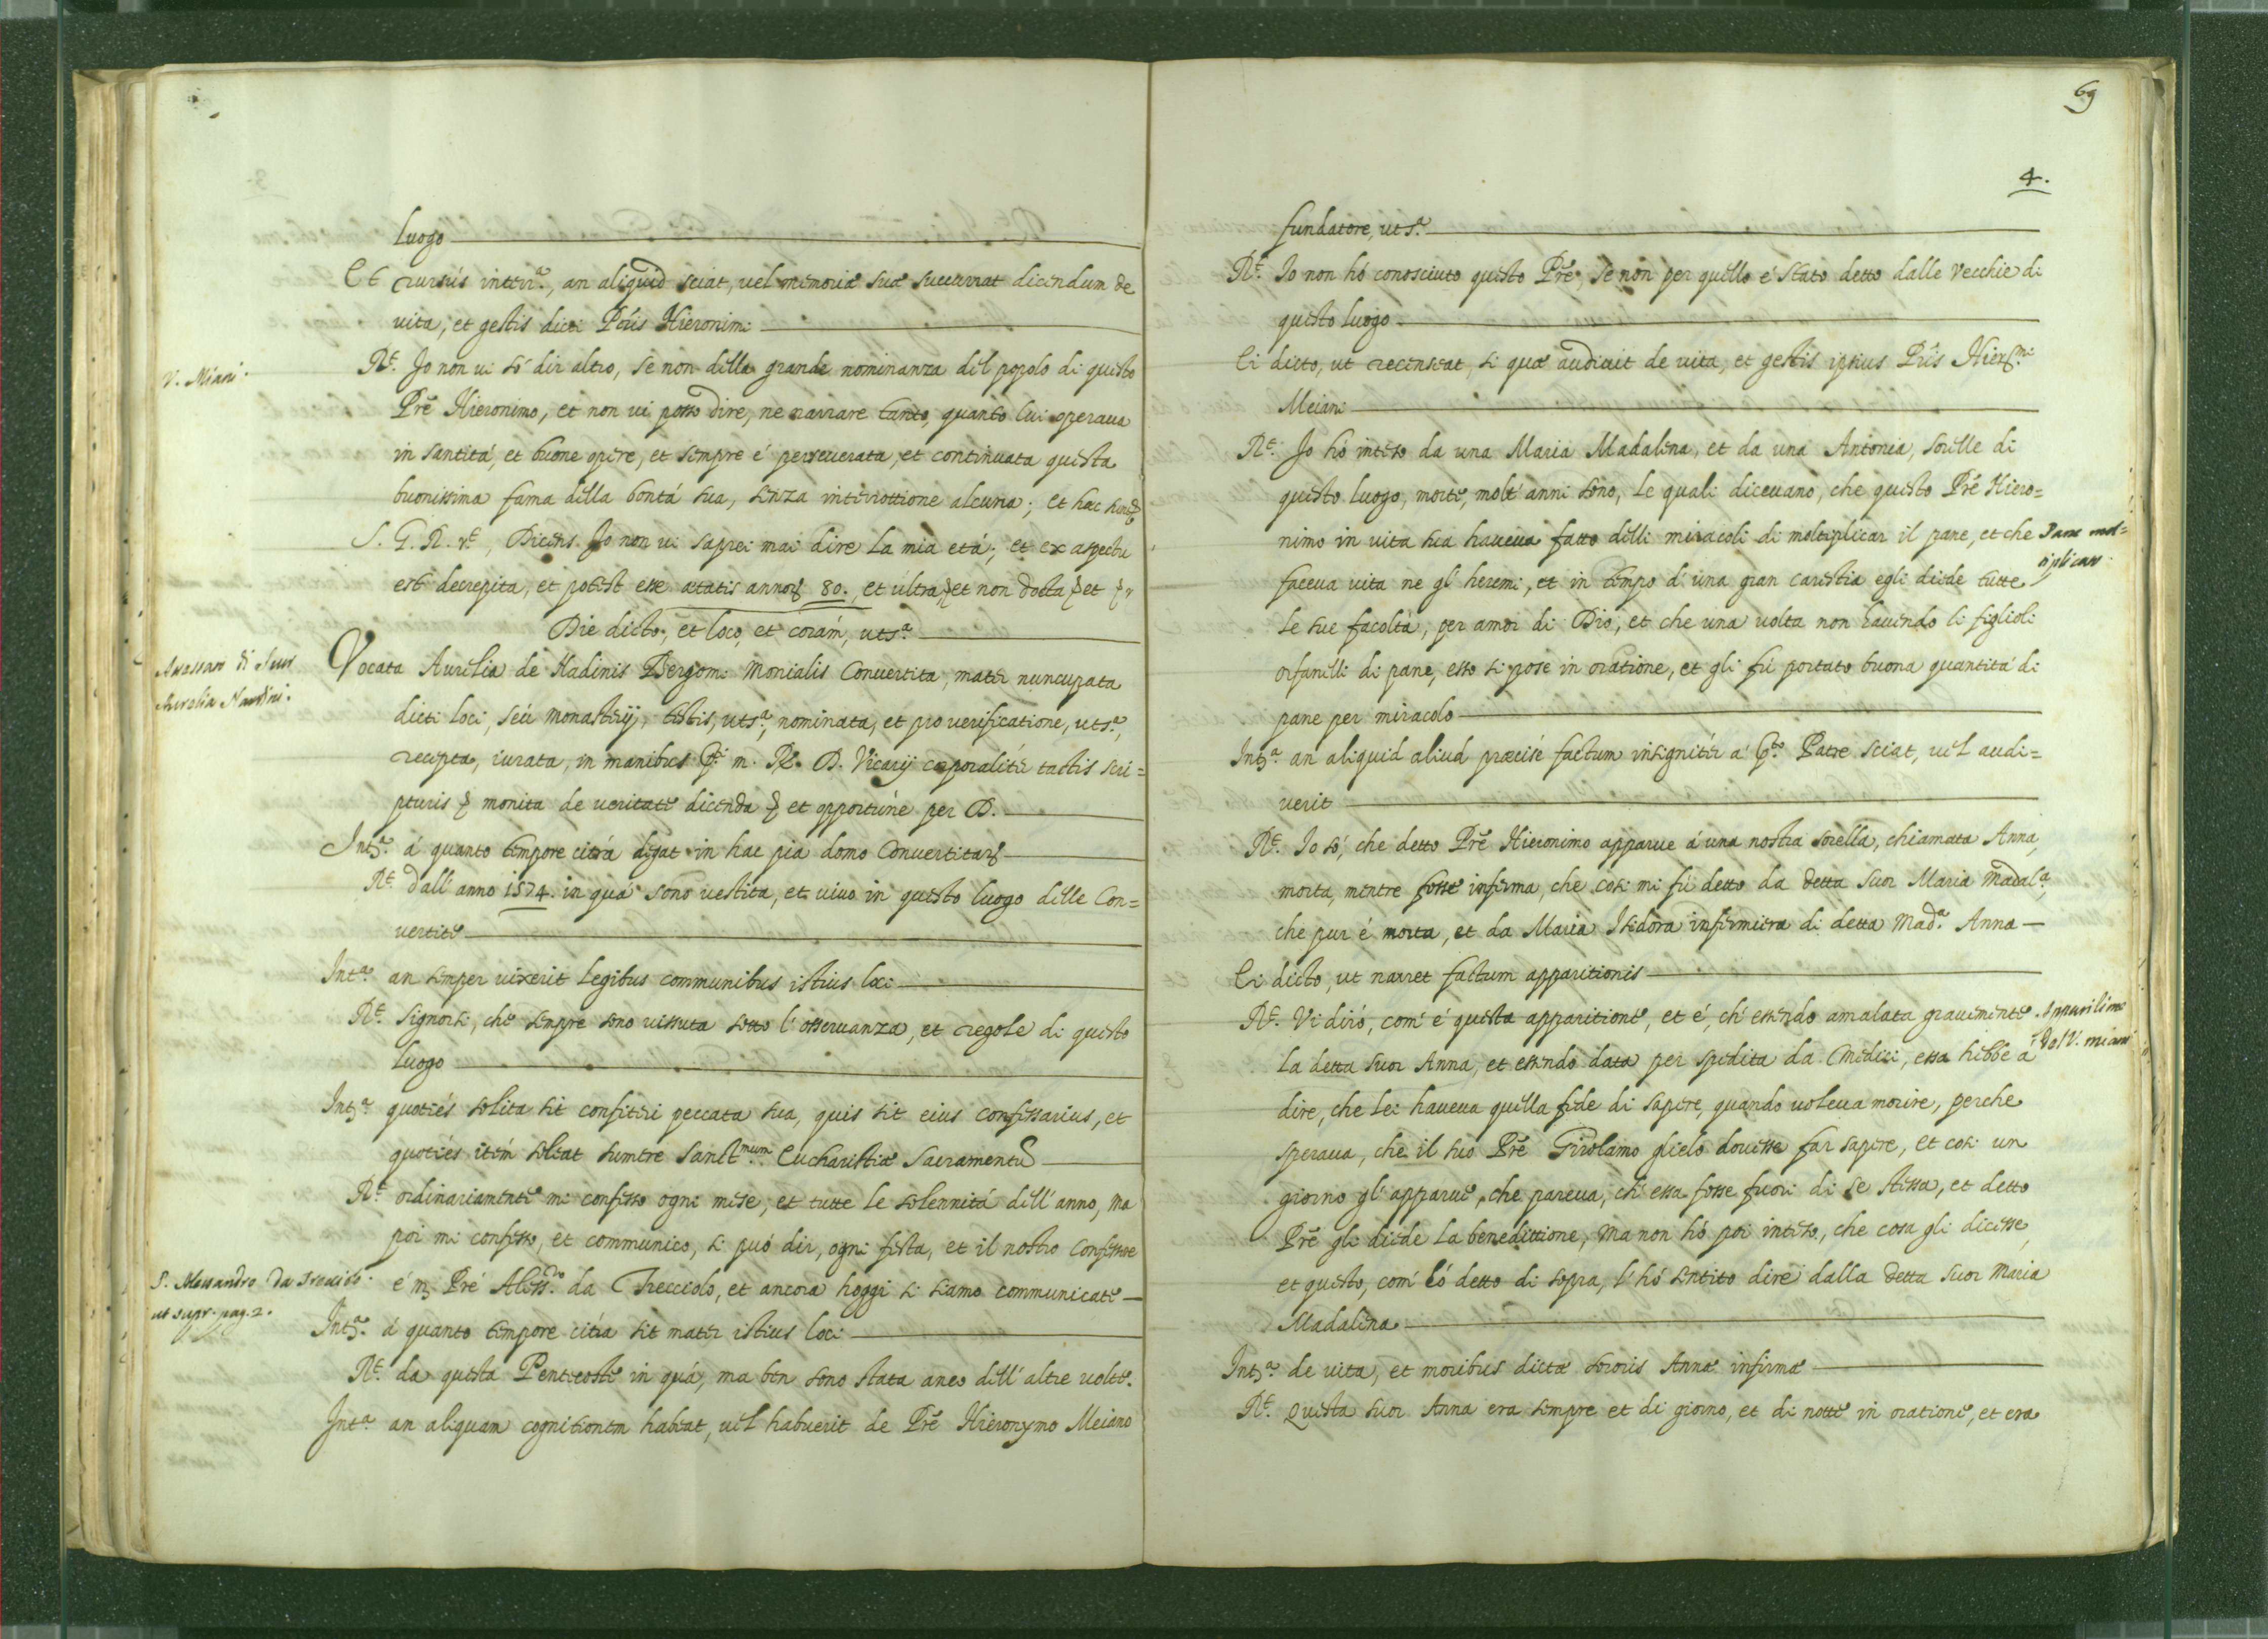 luogo
Et rursús inter.ª, an aliquid sciat, vel memoriæ suæ succurrat dicendum de
vita, et gestis dicti Pris Hieronimi
V. Miani.
R.e Jo non vi só dir altro, se non della grande nominanza del popolo di questo
Pré Hieronimo, et non vi posso dire, ne narrare tanto, quanto lui operaua
in santitá, et buone opere, et sempre é perseuerata, et continuata questa
buonissima fama della bontá sua, senza interrottione alcuna; et hæc
S. G. R. r.e, Dicens. Jo non vi saprei mai dire la mia etá; et ex aspectu
est decrepita, et potest esse ætatis annor. 80., et ultra et non docta et
Die dicto, et loco, et coram, uts.ª
Suor
Aurelia Nardini.
Vocata Aurelia de Nadinis Bergomi Monialis Convertita, mater nuncupata
dicti loci, seú monasterij, testis, uts.ª, nominata, et pro verificatione, uts.ª,
recepta, iurata, in manibus p.ti m. R. D. Vicarij corporalitér tactis scri=
pturis monita de veritate dicenda et opportúne per D.
Int.ª á quanto tempore citrá degat in hac pia domo Convertitar.
R.e dall' anno 1574. in quá sono vestita, et vivo in questo luogo delle Con=
vertite
Int.ª an semper vixerit legibus communibus istius loci
R.e Signorsi, che sempre sono vissuta sotto l' osseruanza, et regole di questo
luogo
Int.ª quotiés solita sit confiteri peccata sua, quis sit eius confessarius, et
quotiés item soleat sumere Sanct.mum Eucharistiæ Sacramentu
R.e ordinariamente mi confesso ogni mese, et tutte le solennitá dell' anno, ma
poi mi confesso, et communico, si puó dir, ogni festa, et il nostro Confessore
P. Alessandro da Trecciolo.
ut supr. pag. 2.
é m. Pré Aless.do da Trecciolo, et ancora hoggi si siamo communicate
Int.ª á quanto tempore citra sit mater istius loci
R.e da questa Pentecoste in quá, ma ben sono stata anco dell' altre volte.
Int.ª an aliquam cognitionem habeat, vel habuerit de Pré Hieronymo Meiano
69
4.
fundatore, uts.ª
R.e Jo non hó conosciuto questo Pré, se non per quello é stato detto dalle vecchie di
questo luogo
Ei dicto, ut recenseat, si quæ audiuit de vita, et gestis ipsius Pris Hier.mi
Meiani
R.e Jo hó inteso da una Maria Madalena, et da una Antonia, sorelle di
questo luogo, morte, molt' anni sono, le quali diceuano, che questo Pré Hiero=
nimo in vita sua haueua fatto delli miracoli di moltiplicar il pane, et che
Pane mol=
tiplicar.
faceua vita ne gl' heremi, et in tempo d' una gran carestia egli diede tutte
le sue facoltá, per amor di Dio, et che una volta non hauendo li figlioli
orfanelli di pane, esso si pose in oratione, et gli fú portato buona quantitá di
pane per miracolo
Int.ª an aliquid aliud præcisé factum insignitér á p.to Patre sciat, vel audi=
verit
R.e Jo só, che detto Pré Hieronimo apparue á una nostra sorella, chiamata Anna,
morta, mentre fosse inferma, che cosi mi fú detto da detta Suor Maria Madal.ª,
che pur é morta, et da Maria Isidora infermiera di detta Mad.ª Anna
Ei dicto, ut narret factum apparitionis
R.e Vi diró, com' é questa apparitione, et é, ch' essendo amalata grauemente
del V. Miani
la detta Suor Anna, et essendo data per spedita da Medici, essa hebbe á
dire, che lei haueua quella fede di sapere, quando voleua morire, perche
speraua, che il suo Pré Girolamo glielo douesse far sapere, et cosi un
giorno gl' apparue, che pareua, ch' essa fosse fuori di se stessa, et detto
Pré gli diede la benedittione, ma non hó poi inteso, che cosa gli dicesse,
et questo, com' hó detto di sopra, l' hó sentito dire dalla detta Suor Maria
Madalena
Int.ª de vita, et moribus dictæ sororis Annæ infirmæ
R.e Questa Suor Anna era sempre et di giorno, et di notte in oratione, et era